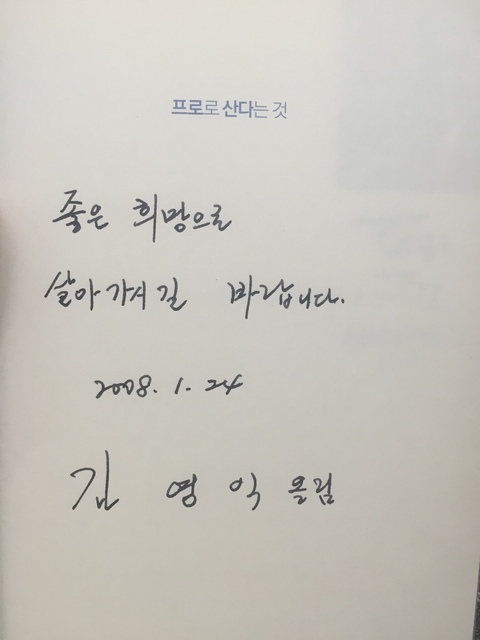 프로로 산다는 것
좋은 희망으로
살아가시길 바랍니다.
2008. 1. 24
김 영 익 올림